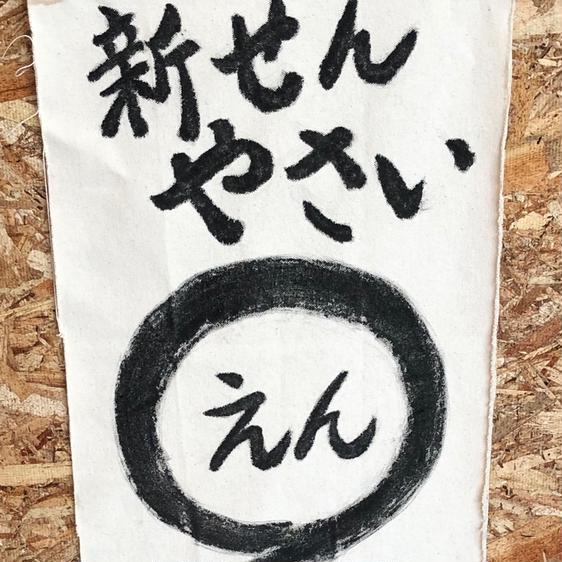 新せん
やさい
えん